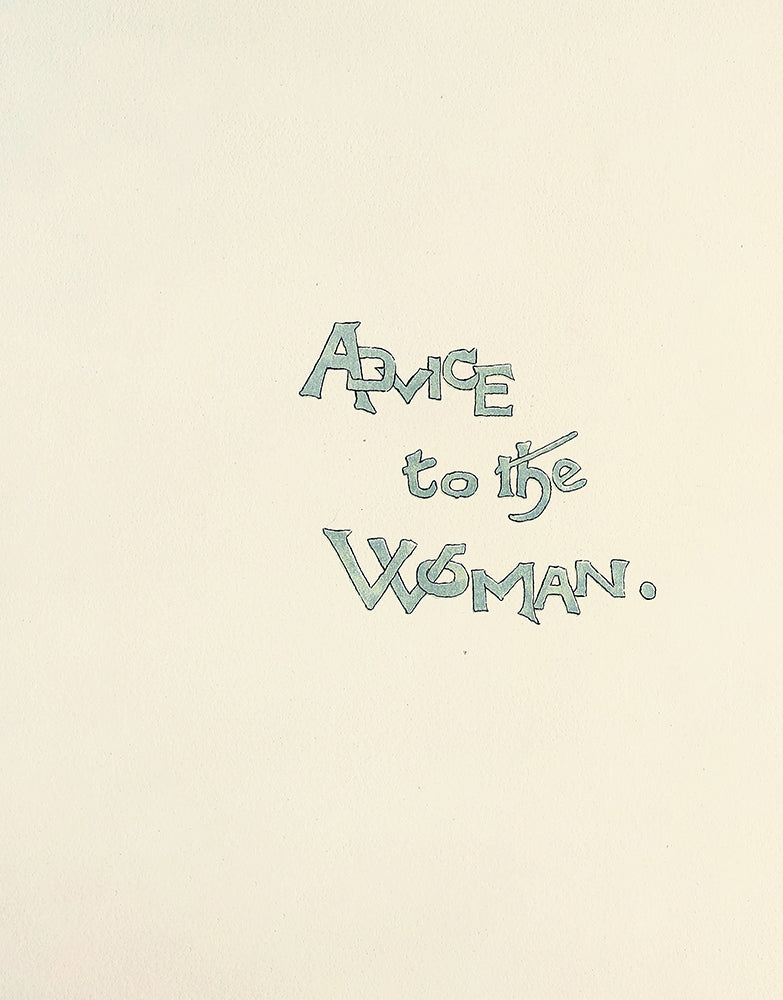 ADVICE
to the
WOMAN.